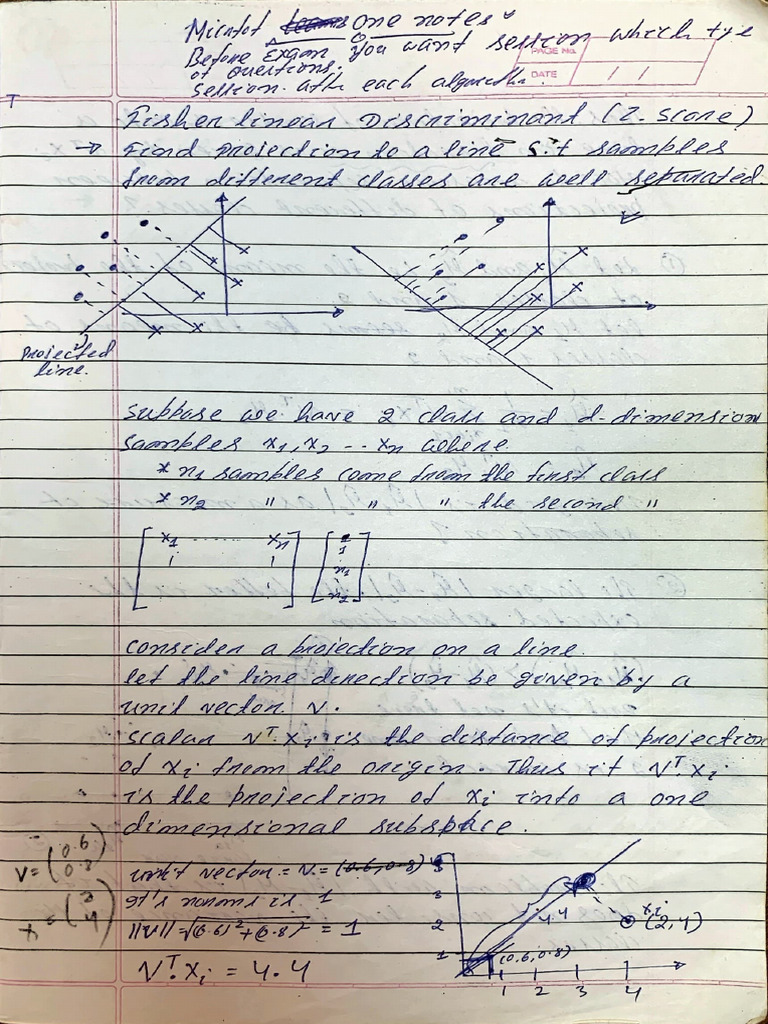 one notes
Before Exam you want session which
of questions.
PAGE No.
session after each algorithm.
DATE / /
Fisher linear Discriminant (Z-score)
→ Find projection to a line s.t samples
from different classes are well separated.
projected
line.
suppose we have 2 class and d-dimension
samples x1, x2 -- xn where
* n1 samples come from the first class
* n2 " " " the second "
x1 ...... xn
1
n1
n2
consider a projection on a line.
let the line direction be given by a
unit vector v.
scalar vT.xi is the distance of projection
of xi from the origin. Thus it vT.xi
is the projection of xi into a one
dimensional subspace.
v = (0.6 0.8)
x = ( 4)
unit vector = v = (0.6, 0.8)
It's norms is 1
||v|| = √(0.6)²+(0.8)² = 1
vT.xi = 4.4
3
2
1
4.4
xi
(2,4)
(0.6,0.8)
1 2 3 4